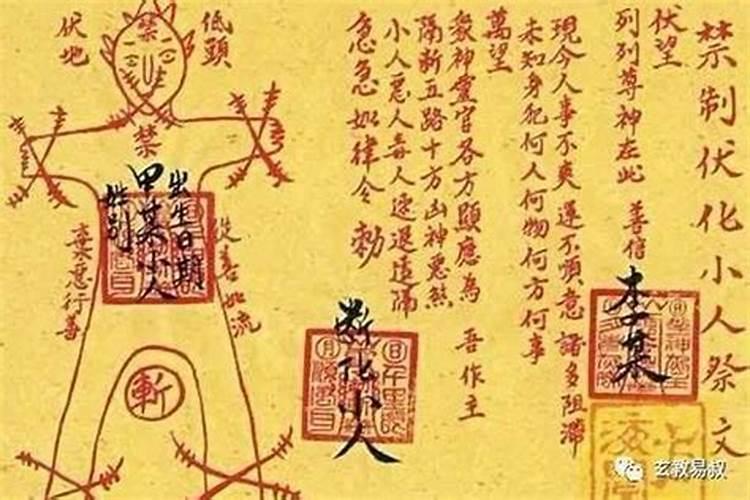 禁制伏化小人祭文
伏望
列列尊神在此 善信 李某
現今人事不爽運不順意諸多阻滯
未知身犯何人何物何方何事
萬望
眾神靈官各方顯應為 吾作主
隔斷五路十方凶神惡煞
小人惡人毒人速退遠隔
急急如律令 勑
斷化小人
低頭
禁
伏地
禁
出生日期
甲某小人
姓別
從善如流
棄惡行善
斬
玄教易叔